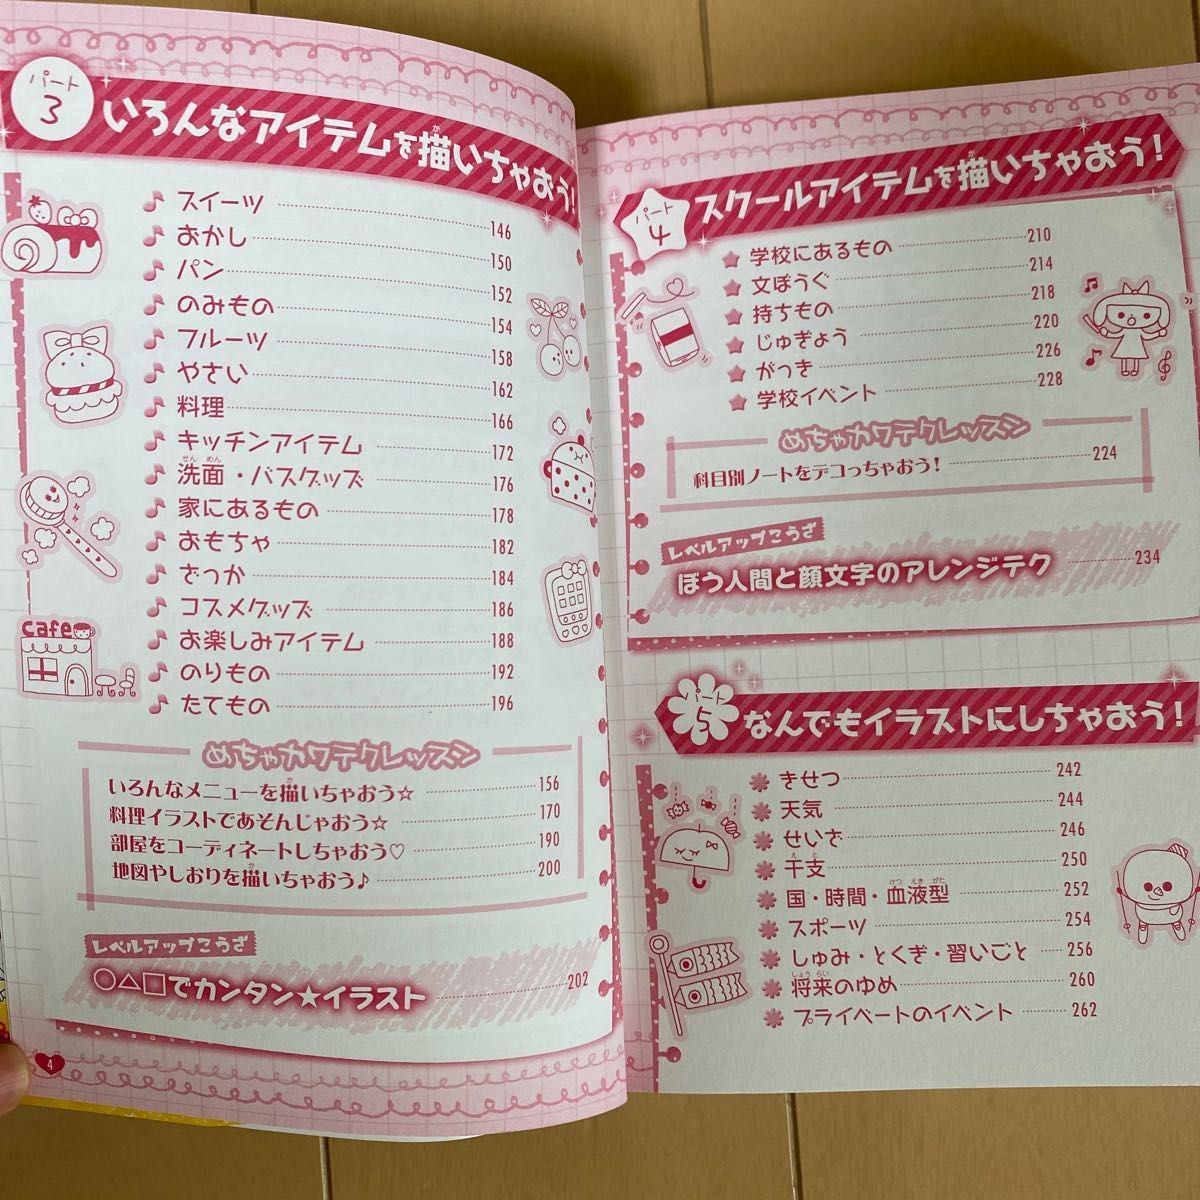 パート
3
いろんなアイテムを描いちゃおう!
スイーツ 146
おかし 150
パン 152
のみもの 154
フルーツ 158
やさい 162
料理 166
キッチンアイテム 172
洗面・バスグッズ 176
家にあるもの 178
おもちゃ 182
ざっか 184
コスメグッズ 186
お楽しみアイテム 188
のりもの 192
たてもの 196
cafe
めちゃカワテクレッスン
いろんなメニューを描いちゃおう☆ 156
料理イラストであそんじゃおう☆ 170
部屋をコーディネートしちゃおう♡ 190
地図やしおりを描いちゃおう♪ 200
レベルアップこうざ
○△□でカンタン★イラスト 202
4
パート
4
スクールアイテムを描いちゃおう!
学校にあるもの 210
文ぼうぐ 214
持ちもの 218
じゅぎょう 220
がっき 226
学校イベント 228
めちゃカワテクレッスン
科目別ノートをデコっちゃおう! 224
レベルアップこうざ
ぼう人間と顔文字のアレンジテク 234
パート
5
なんでもイラストにしちゃおう!
きせつ 242
天気 244
せいざ 246
干支 250
国・時間・血液型 252
スポーツ 254
しゅみ・とくぎ・習いごと 256
将来のゆめ 260
プライベートのイベント 262